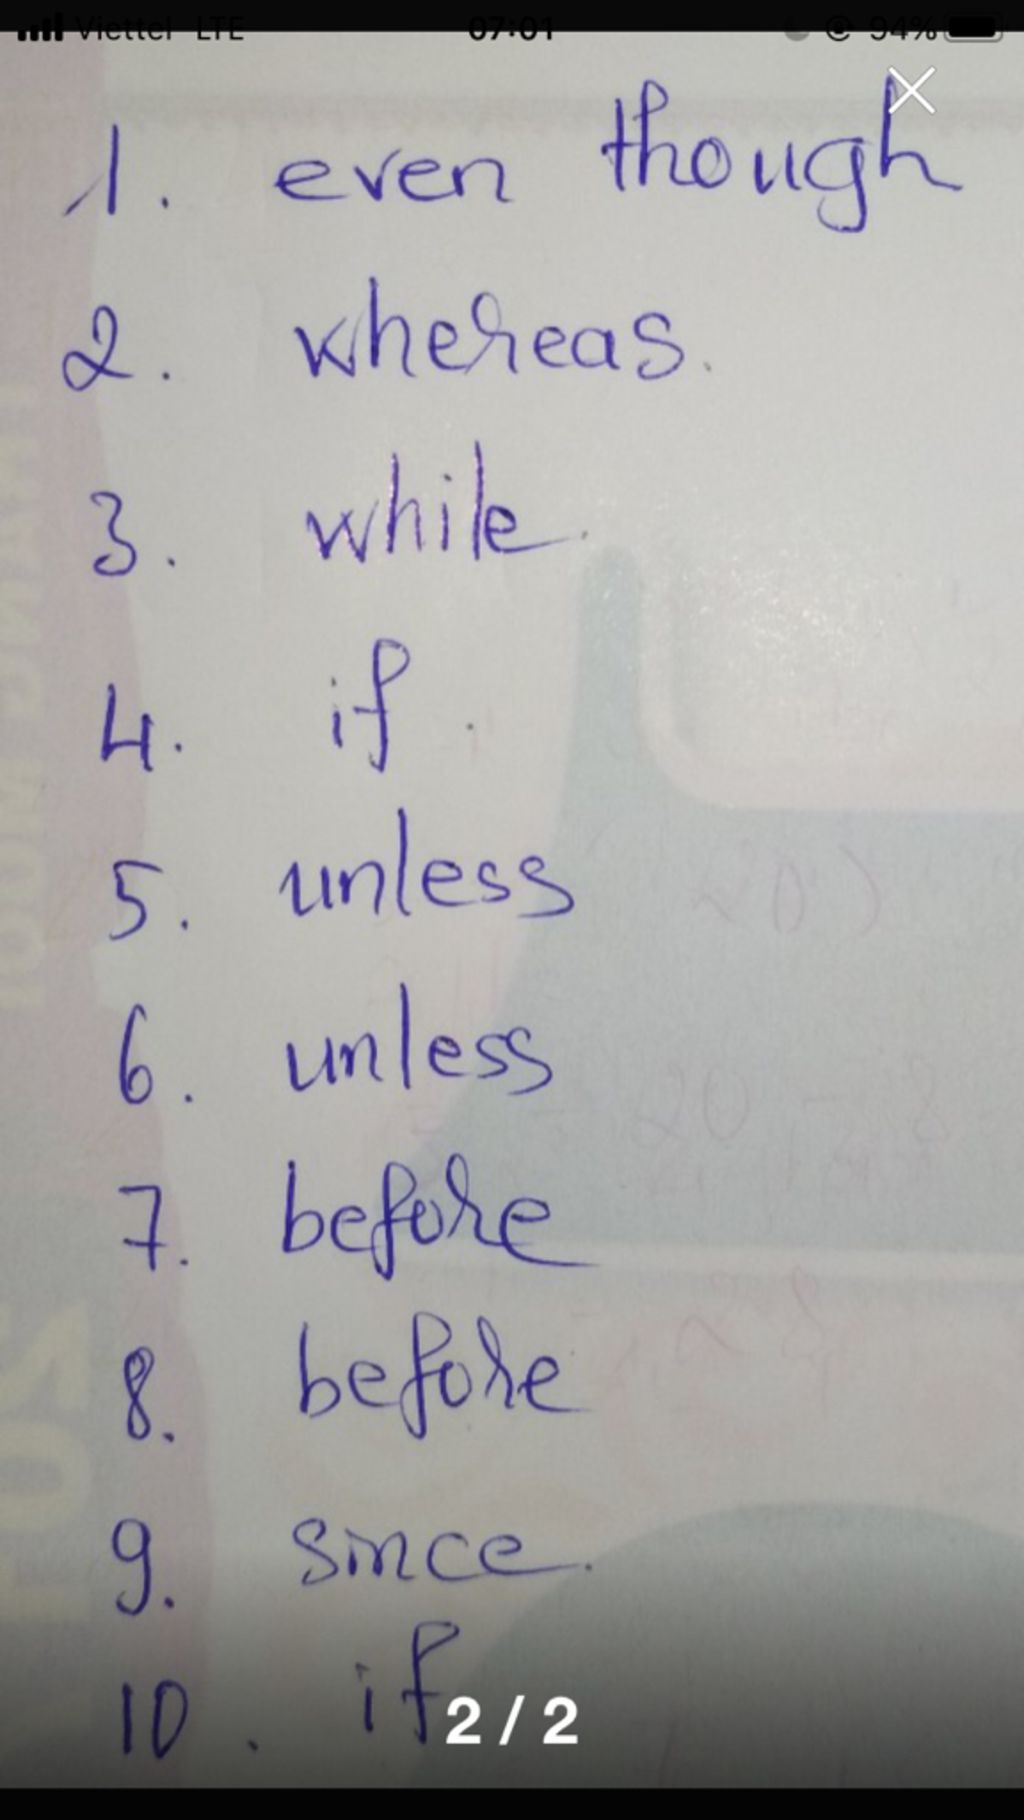 Viettel LTE 07:01 94%
1. even though
2. whereas.
3. while.
4. if.
5. unless
6. unless
7. before
8. before
9. since.
10. if
2 / 2